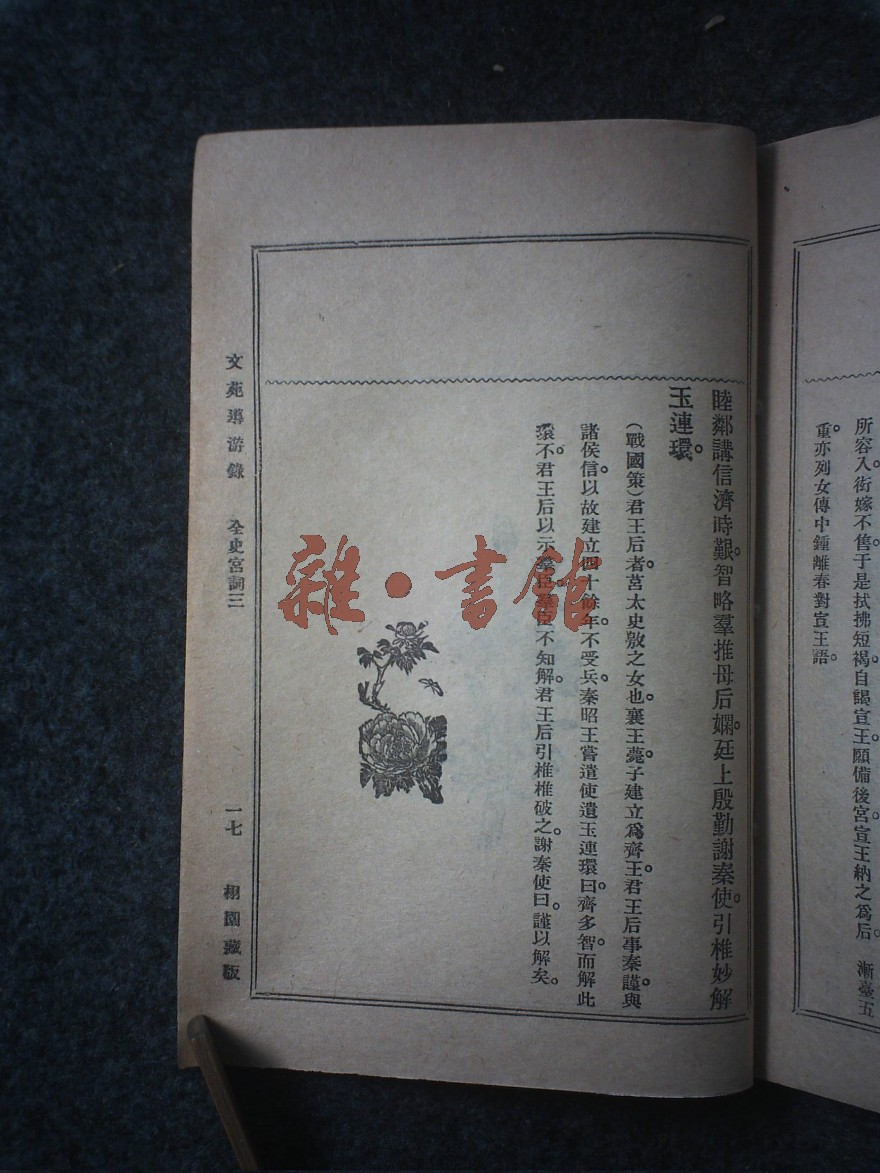 所容入衒嫁不售。于是拭拂短褐。自謁宣王。願備後宮。宣王納之爲后。　漸臺五
重亦列女傳中鍾離春對宣王語。
睦鄰講信濟時艱。智略羣推母后嫻。廷上殷勤謝秦使。引椎妙解
玉連環。
(戰國策)君王后者。莒太史敫之女也。襄王薨。子建立爲齊王。君王后事秦謹。與
諸侯信。以故建立四十餘年。不受兵。秦昭王嘗遣使遺玉連環曰。齊多智。而解此
環不。君王后以示羣臣。羣臣不知解。君王后引椎椎破之。謝秦使曰。謹以解矣。
文苑導游錄　全史宮詞三　一七　栩園藏版
雜·書館